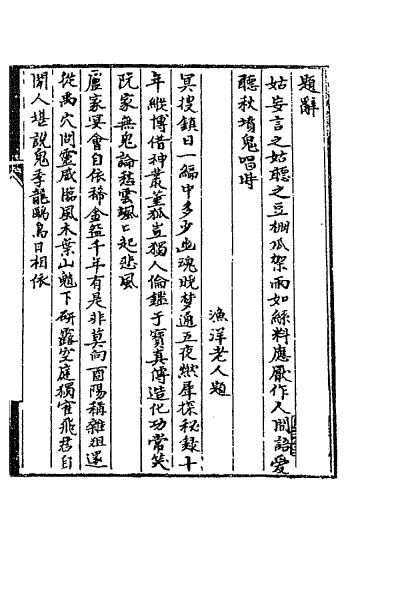 題辭
姑妄言之姑聽之豆棚瓜架雨如絲料應厭作人間語愛
聽秋墳鬼唱時
漁洋老人題
冥搜鎮日一編中多少幽魂曉夢通五夜燃犀探秘録十
年縱博借神叢董狐豈獨人倫鑑于寶真傳造化功常笑
阮家無鬼論愁雲颯〻起悲風
盧家冥會自依稀金盌千年有是非莫向酉陽稱雜俎還
從禹穴問靈威臨風木葉山魈下研露空庭獨雀飛君自
閒人堪說鬼季龍鷗鳥日相依